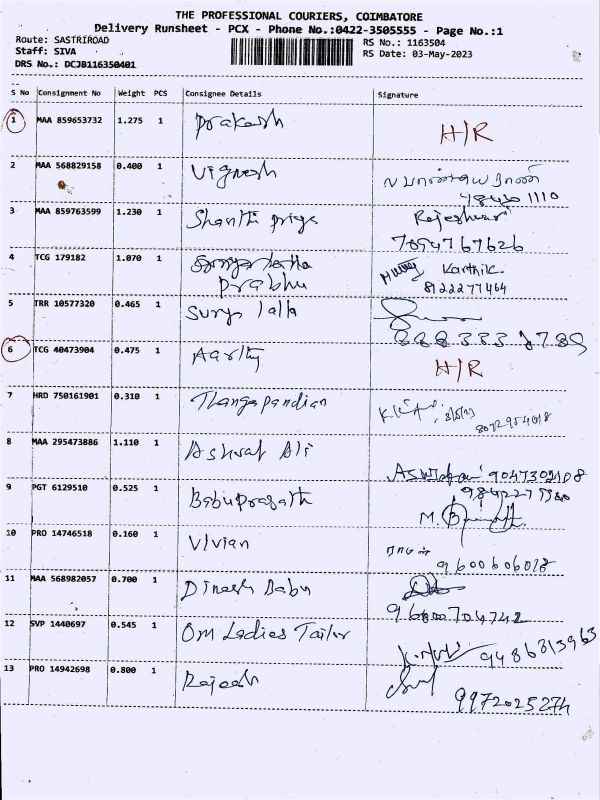 THE PROFESSIONAL COURIERS, COIMBATORE
Delivery Runsheet - PCX - Phone No.:0422-3505555 - Page No.:1
Route: SASTRIROAD
RS No.: 1163504
Staff: SIVA
RS Date: 03-May-2023
DRS No.: DCJB116350401
S No Consignment No Weight PCS Consignee Details Signature
1 MAA 859653732 1.275 1 Prakash H/R
2 MAA 568829158 0.400 1 Vignesh
3 MAA 859763599 1.230 1 Shanthi priya Rajeshwari
7094767626
4 TCG 179182 1.070 1 Prabhu Karthik
8122277464
5 TRR 10577320 0.465 1 Surya lalla
6 TCG 40473904 0.475 1 Aarthy H/R
7 HRD 750161901 0.310 1 Thangapandian
8072954018
8 MAA 295473886 1.110 1 Ashraf Ali
9047309108
9 PGT 6129510 0.525 1 Babuprasath
10 PRO 14746518 0.160 1 Vivian
9600606018
11 MAA 568982057 0.700 1 Dinesh Babu
12 SVP 1440697 0.545 1 Om Ladies Tailor
9486813963
13 PRO 14942698 0.800 1 Rajesh
9972025274